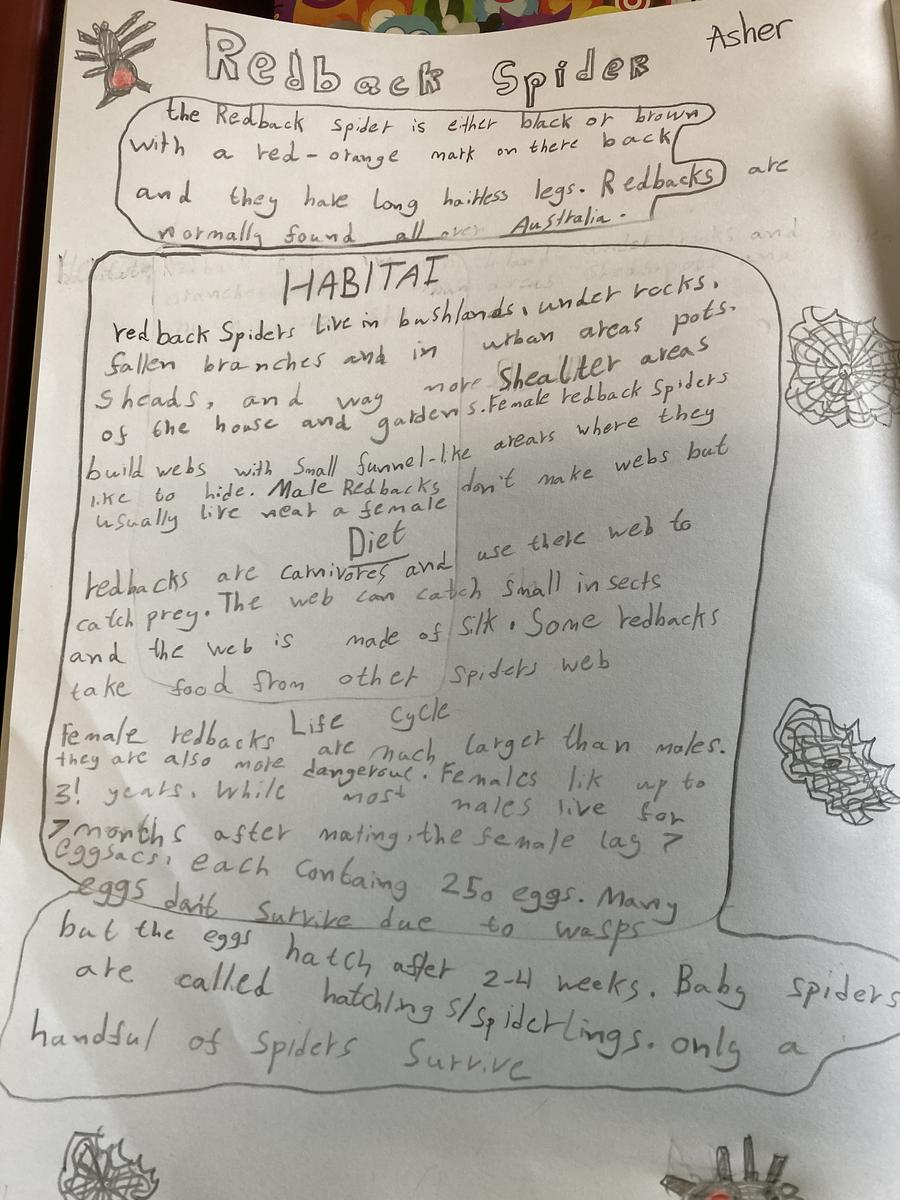 Redback Spider Asher
the Redback spider is either black or brown
with a red-orange mark on there back
and they have long hairless legs. Redbacks are
normally found all over Australia.
HABITAT
redback Spiders Live in bushlands, under rocks,
fallen branches and in urban areas pots.
Sheads, and way more Shealter areas
of the house and gardens. Female redback Spiders
build webs with Small funnel-like arears where they
like to hide. Male Redbacks don't make webs but
usually live near a female
Diet
redbacks are carnivores and use there web to
catch prey. The web can catch small insects
and the web is made of silk. Some redbacks
take food from other spiders web
Life cycle
Female redbacks are much larger than males.
they are also more dangerous. Females lik up to
3! years. While most males live for
7 months after mating, the female lag 7
eggsacs, each containg 250 eggs. Many
eggs dont Survive due to wasps
but the eggs hatch after 2-4 weeks. Baby spiders
are called hatchlings/spiderlings. only a
handful of Spiders Survive